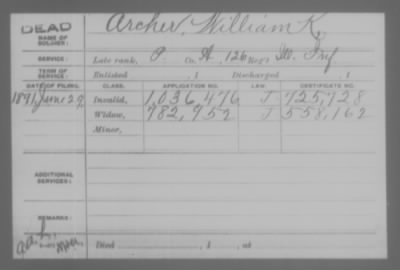 DEAD
NAME OF SOLDIER:
Archer, William K.
SERVICE:
Late rank, P. Co. A, 126 Reg't Ill. Inf
TERM OF SERVICE:
Enlisted , 1 Discharged , 1
DATE OF FILING. CLASS. APPLICATION NO. LAW. CERTIFICATE NO.
1891, June 29 Invalid, 1,036,476 J 725,728
Widow, 782,952 J 558,162
Minor,
ADDITIONAL SERVICES:
REMARKS:
Died , 1 , at